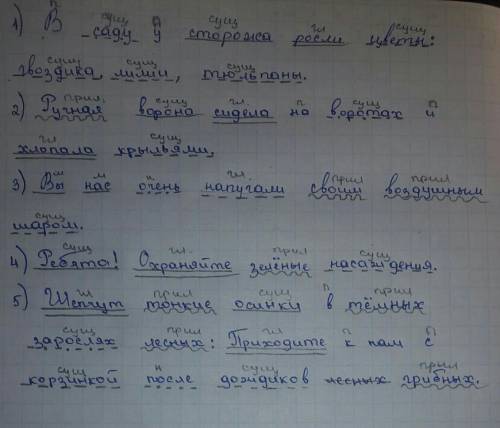 п сущ п сущ гл сущ
1) В саду у сторожа росли цветы:
сущ сущ сущ
гвоздика, лилии, тюльпаны.
прил. сущ гл. п сущ п
2) Ручная ворона сидела на воротах и
гл сущ
хлопала крыльями.
м м н гл. прил прил
3) Вы нас очень напугали своим воздушным
сущ
шаром.
сущ гл. прил сущ
4) Ребята! Охраняйте зелёные насаждения.
гл прил сущ п прил
5) Шепчут тонкие осинки в тёмных
сущ прил гл п п
зарослях лесных: Приходите к нам с
сущ н сущ прил
корзинкой после дождиков грибных.